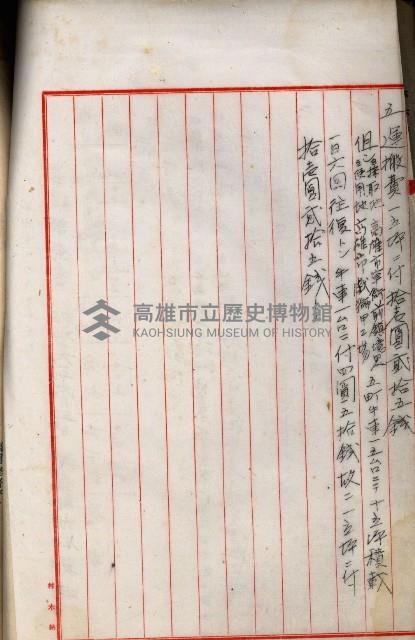 五 運搬費 一立坪ニ付 拾壱圓貳拾五錢
但シ
使用地 高雄市戲獅甲工場
五町牛車一台ニテ十立坪積載
一日六回往復トシ牛車一台ニ付四圓五拾錢故ニ一立坪ニ付
拾壱圓貳拾五錢
高雄市立歷史博物館
KAOHSIUNG MUSEUM OF HISTORY